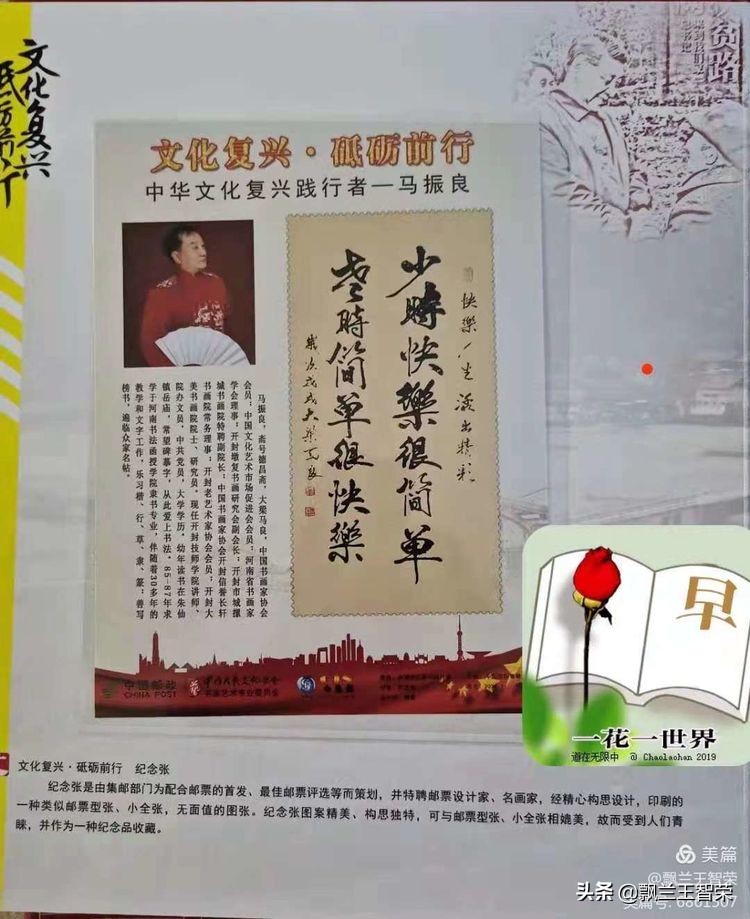 文化复兴
砥砺前行
贫路
文化复兴·砥砺前行
中华文化复兴践行者—马振良
快樂人生活出精彩
少時快樂很简单
老時简单很快樂
歲次戊戌大梁马良
马振良，斋号德昌斋，大梁马良，中国书画家协会
会员；中国文化艺术市场促进会会员；河南省书画家
学会理事；开封增复书画研究会副会长；开封市城摞
城书画院特聘副院长；中国书画家协会开封信誉长轩
书画院常务理事；开封老艺术家协会会员；开封大
美书画院院士、研究员。现任开封技师学院讲师、
院办文员，中共党员，大学学历。幼年读书在朱仙
镇岳庙，常望碑摹字，从此爱上书法。85-87年求
学于河南书法函授学院隶书专业，伴随着30多年的
教学和文字工作，乐习楷、行、草、隶、篆；善写
榜书，遍临众家名帖。
中国邮政
CHINA POST
早
一花一世界
道在无限中 @ Chaolaohan 2019
文化复兴·砥砺前行 纪念张
纪念张是由集邮部门为配合邮票的首发、最佳邮票评选等而策划，并特聘邮票设计家、名画家，经精心构思设计，印刷的
一种类似邮票型张、小全张，无面值的图张。纪念张图案精美、构思独特，可与邮票型张、小全张相媲美，故而受到人们青
睐，并作为一种纪念品收藏。
美篇
@飘兰王智荣
美篇号: 6861507
头条 @飘兰王智荣